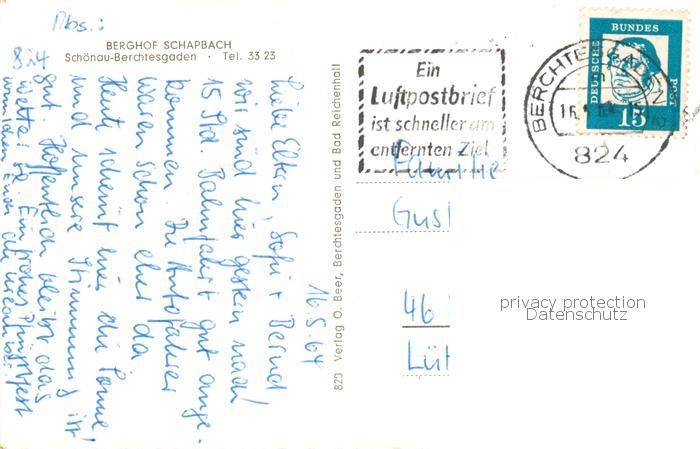 Abs.:
BERGHOF SCHAPBACH
Schönau-Berchtesgaden · Tel. 33 23
824
16.5.64
Liebe Eltern, Sofi + Bernd!
wir sind hier gestern nach
15 Std. Bahnfahrt gut ange-
kommen. Die Autofahrer
waren schon eher da
Heute scheint hier die Sonne,
und unsere Stimmung ist
gut. Hoffentlich bleibt das
Wetter so. Ein frohes Pfingstfest
wünschen Euch die
829 Verlag O. Beer, Berchtesgaden und Bad Reichenhall
Ein
Luftpostbrief
ist schneller am
entfernten Ziel
BERCHTESGADEN
824
DEUTSCHE
BUNDES
POST
15
Familie
Gus
46
Lü
privacy protection
Datenschutz